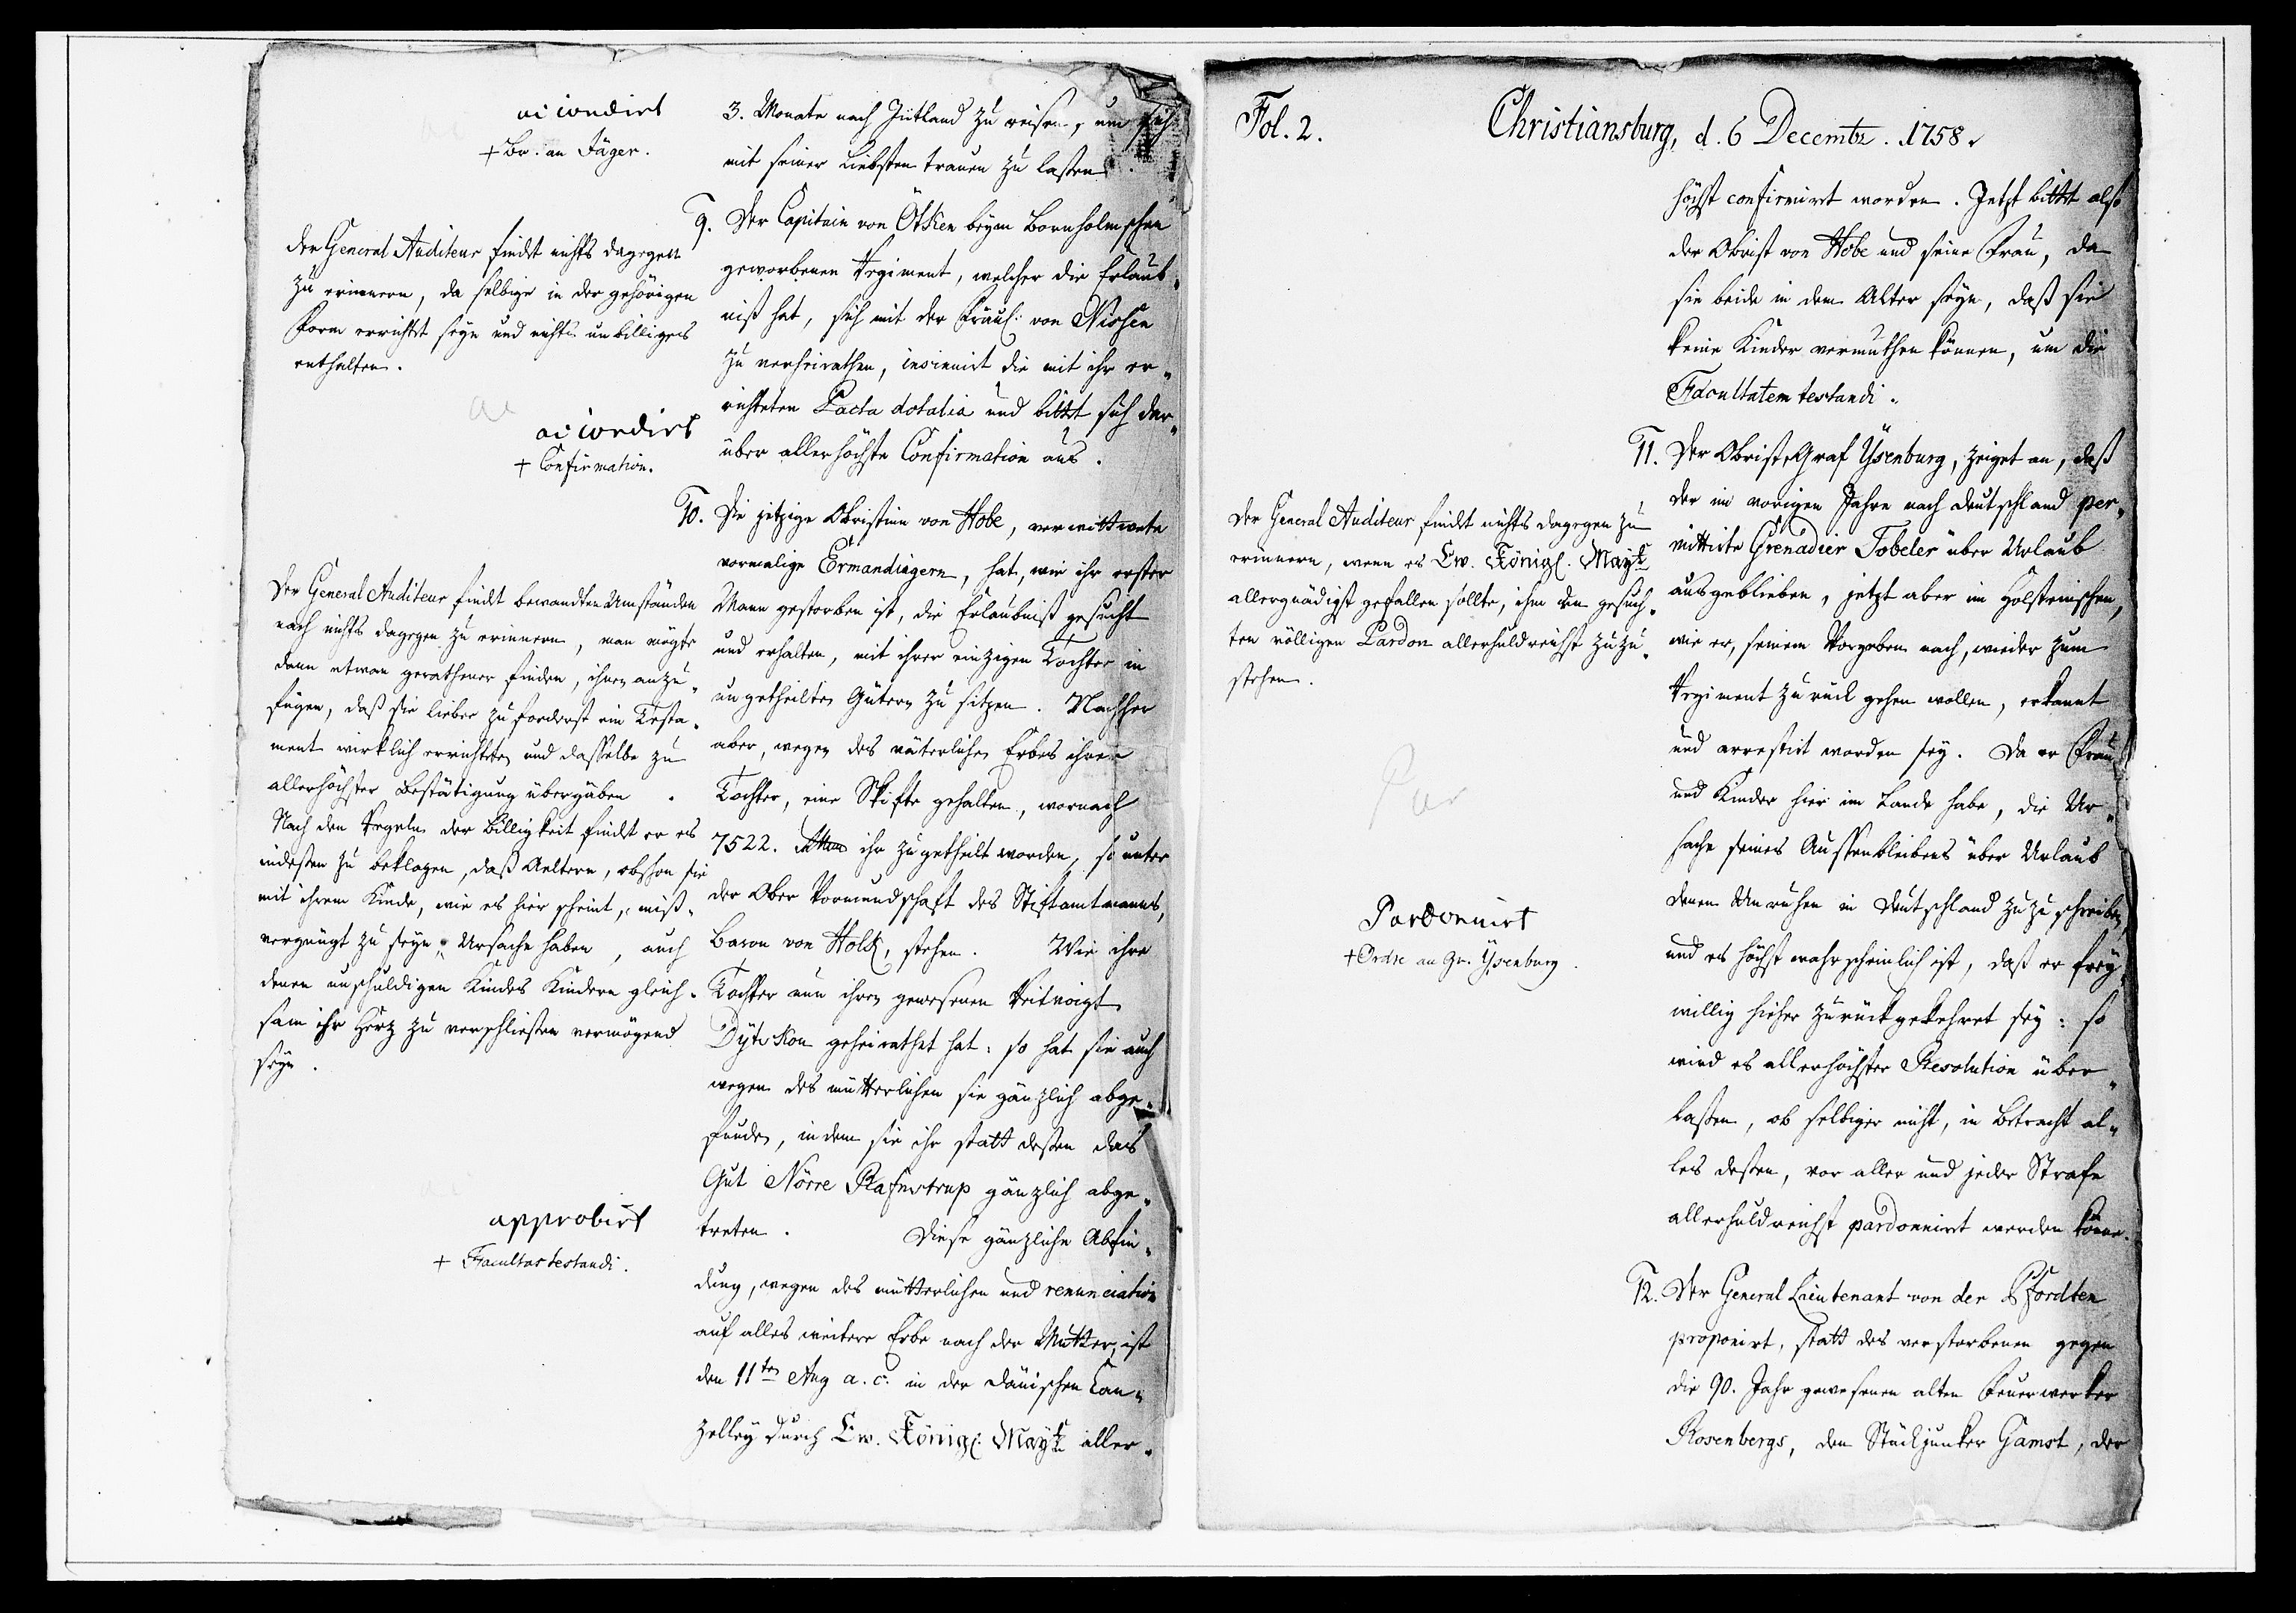 accordirt
+ Br. an Jäger.
3. Monate nach Jütland zu reisen, um sich
mit seiner Liebsten trauen zu laßen.
der General Auditeur findt nichts dagegen
zu erinnern, da selbige in der gehörigen
Form errichtet seyn und nichts unbilliges
enthalten.
accordirt
+ Confirmation.
9. Der Capitain von Ötken beym Bornholmschen
geworbenen Regiment, welcher die Erlaub-
niß hat, sich mit der Fräul: von Nissen
zu verheirathen, insinuirt die mit ihr er-
richteten Pacta dotalia und bittet sich dar-
über allerhöchste Confirmation aus.
Der General Auditeur findt bewandten Umständen
nach nichts dagegen zu erinnern, man mögte
denn etwan gerathener finden, ihnen anzu-
fügen, daß sie lieber zuforderst ein Testa-
ment wirklich errichteten und dasselbe zu
allerhöchster Bestätigung übergäben.
Nach den Regeln der Billigkeit findt er es
indeßen zu beklagen, daß Aeltern, obschon sie
mit ihrem Kinde, wie es hier scheint, miß-
vergnügt zu seyn Ursache haben, auch
denen unschuldigen Kindes Kindern gleich-
sam ihr Herz zu verschließen vermögend
seyn.
approbirt
+ Facultas testandi.
10. Die jetzige Obristin von Hobe, verwittwete
vormalige Ermandingern, hat, wie ihr erster
Mann gestorben ist, die Erlaubniß gesucht
und erhalten, mit ihrer einzigen Tochter in
ungetheilten Gütern zu sitzen. Nachher
aber, wegen des väterlichen Erbes ihrer
Tochter, eine Skifte gehalten, wornach
7522. ihr zugetheilt worden, so unter
der Ober Vormundschaft des Stiftamtmanns,
Baron von Holck, stehen. Wie ihre
Tochter nun ihren gewesenen Reitvoigt
geheirathet hat: so hat sie auch
wegen des mütterlichen sie gänzlich abge-
funden, indem sie ihr statt deßen das
Gut Nörre Rafnstrup gänzlich abge-
treten. Diese gänzliche Abfin-
dung, wegen des mütterlichen und renunciation
auf alles weitere Erbe nach der Mutter, ist
den 11ten Aug a. c. in der Dänischen Can-
zelley durch Ew. Königl: Maytt aller-
Fol. 2.
Christiansburg, d. 6 Decembr. 1758.
höchst confirmirt worden. Jetzt bittet also
der Obrist von Hobe und seine Frau, da
sie beide in dem Alter seyn, daß sie
keine Kinder vermuthen können, um die
Facultatem testandi.
Der General Auditeur findt nichts dagegen zu
erinnern, wenn es Ew. Königl. Maytt
allergnädigst gefallen sollte, ihm den gesuch-
ten völligen Pardon allerhuldreichst zuzu-
stehen.
Par
Pardonnirt
+ Ordre an Gr. Ysenburg.
11. Der Obrist, Graf Ysenburg, zeiget an, daß
der im vorigen Jahre nach Deutschland per-
mittirte Grenadier Tobeler über Urlaub
ausgeblieben, jetzt aber im Holsteinischen,
wie er, seinem Vorgeben nach, wieder zum
Regiment zurück gehen wollen, erkannt
und arrestirt worden sey. Da er Frau
und Kinder hier im Lande habe, die Ur-
sache seines Aussenbleibens über Urlaub
denen Unruhen in Deutschland zuzuschreiben,
und es höchst wahrscheinlich ist, daß er frey-
willig hieher zurückgekehret sey: so
wird es allerhöchster Resolution über-
laßen, ob selbiger nicht, in Betracht al-
les deßen, vor aller und jeder Strafe
allerhuldreichst pardonnirt werden könne.
12. Der General Lieutenant von der Pfordten
proponirt, statt des verstorbenen gegen
die 90. Jahr gewesenen alten Feuerwerker
Rosenbergs, den Stückjunker Gamst, der